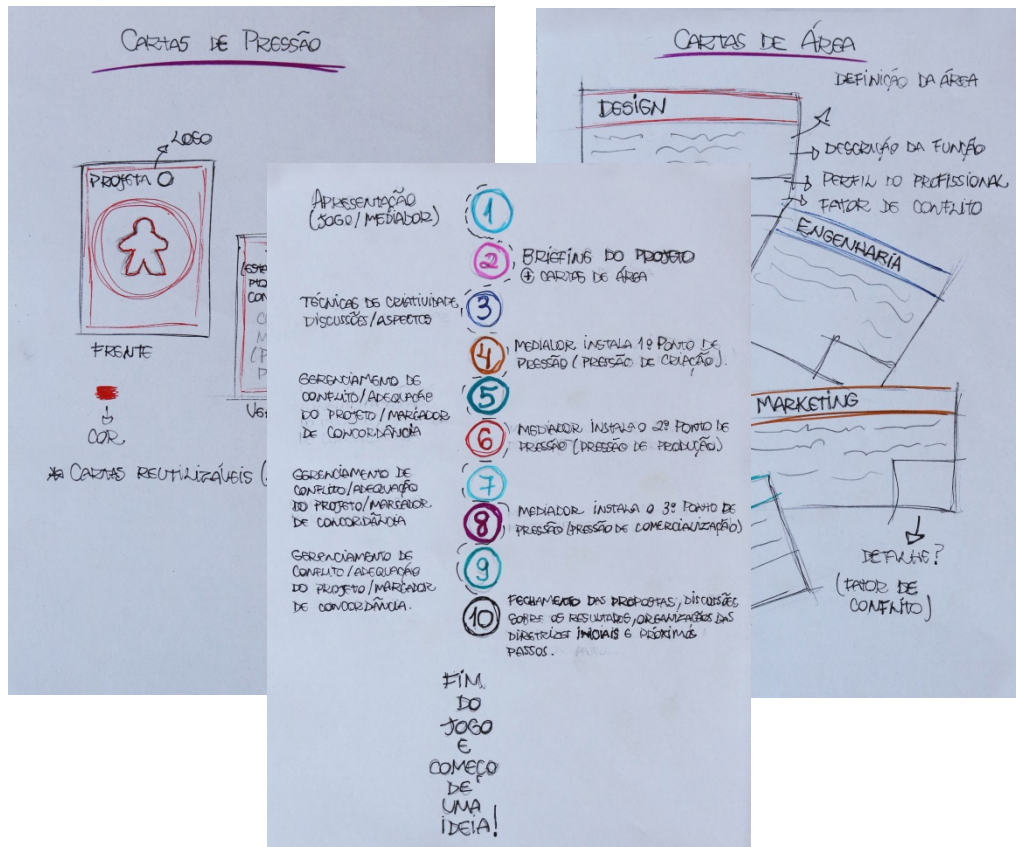 CARTAS DE PRESSÃO
LOGO
PROJETA
FRENTE
COR
* CARTAS REUTILIZÁVEIS (
CARTAS DE ÁREA
DEFINIÇÃO DA ÁREA
DESIGN
DESCRIÇÃO DA FUNÇÃO
PERFIL DO PROFISSIONAL
FATOR DE CONFLITO
ENGENHARIA
MARKETING
DETALHE?
(FATOR DE
CONFLITO)
APRESENTAÇÃO
(JOGO/MEDIADOR)
1
2
BRIEFING DO PROJETO
+ CARTAS DE ÁREA
TÉCNICAS DE CRIATIVIDADE,
DISCUSSÕES/ASPECTOS
3
4
MEDIADOR INSTALA 1º PONTO DE
PRESSÃO (PRESSÃO DE CRIAÇÃO).
GERENCIAMENTO DE
CONFLITO/ADEQUAÇÃO
DO PROJETO/MARCADOR
DE CONCORDÂNCIA
5
6
MEDIADOR INSTALA O 2º PONTO DE
PRESSÃO (PRESSÃO DE PRODUÇÃO)
GERENCIAMENTO DE
CONFLITO/ADEQUAÇÃO
DO PROJETO/MARCADOR
DE CONCORDÂNCIA
7
8
MEDIADOR INSTALA O 3º PONTO DE
PRESSÃO (PRESSÃO DE COMERCIALIZAÇÃO)
GERENCIAMENTO DE
CONFLITO/ADEQUAÇÃO
DO PROJETO/MARCADOR
DE CONCORDÂNCIA.
9
10
FECHAMENTO DAS PROPOSTAS, DISCUSSÕES
SOBRE OS RESULTADOS, ORGANIZAÇÃO DAS
DIRETRIZES INICIAIS E PRÓXIMOS
PASSOS.
FIM
DO
JOGO
E
COMEÇO
DE
UMA
IDEIA!